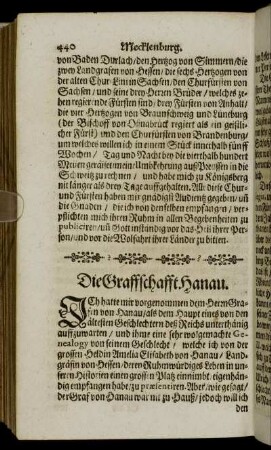 440 Mecklenburg.
von Baden Durlach/ den Hertzog von Simmern/ die
zwey Landgrafen von Hessen/ die sechs Hertzogen von
der alten Chur-Lini in Sachsen/ den Churfürsten von
Sachsen/ und seine drey Herren Brüder/ welches ze-
hen regierende Fürsten sind/ drey Fürsten von Anhalt/
die vier Hertzogen von Braunschweig und Lüneburg
(der Bischoff von Oßnabrück regiert als ein geistli-
cher Fürst) und den Churfürsten von Brandenburg
um welches willen ich in einem Stück innerhalb fünff
Wochen/ Tag und Nacht bey die vierthalb hundert
Meilen geräiset mein Umkehrung auß Preussen in die
Schweitz zu rechnen/ und habe mich zu Königsberg
nit länger als drey Tage auffgehalten. All diese Chur-
und Fürsten haben mir genädige Audientz gegeben/ uñ
die Gnaden/ die ich von denselben empfangen/ ver-
pflichten mich ihren Ruhm in allen Begebenheiten zu
publiciren/ uñ Gott inständig vor das Heil ihrer Per-
son/ und vor die Wolfahrt ihrer Länder zu bitten.
Die Graffschafft Hanau.
ICh hatte mir vorgenommen dem Herrn Gra-
fen von Hanau/ als dem Haupt eines von den
ältesten Geschlechtern deß Reichs unterthänig
auffzuwarten/ und ihme eine sehr wolgemachte Ge-
nealogy von seinem Geschlecht/ welche ich von der
grossen Heldin Amelia Elisabeth von Hanau/ Land-
gräfin von Hessen/ deren Ruhmwürdiges Leben in un-
seren Historien einen grossen Platz einnimbt/ eigenhän-
dig empfangen habe/ zu præsentiren. Aber/ wie gesagt/
der Graf von Hanau war nit zu Hauß/ jedoch will ich
den